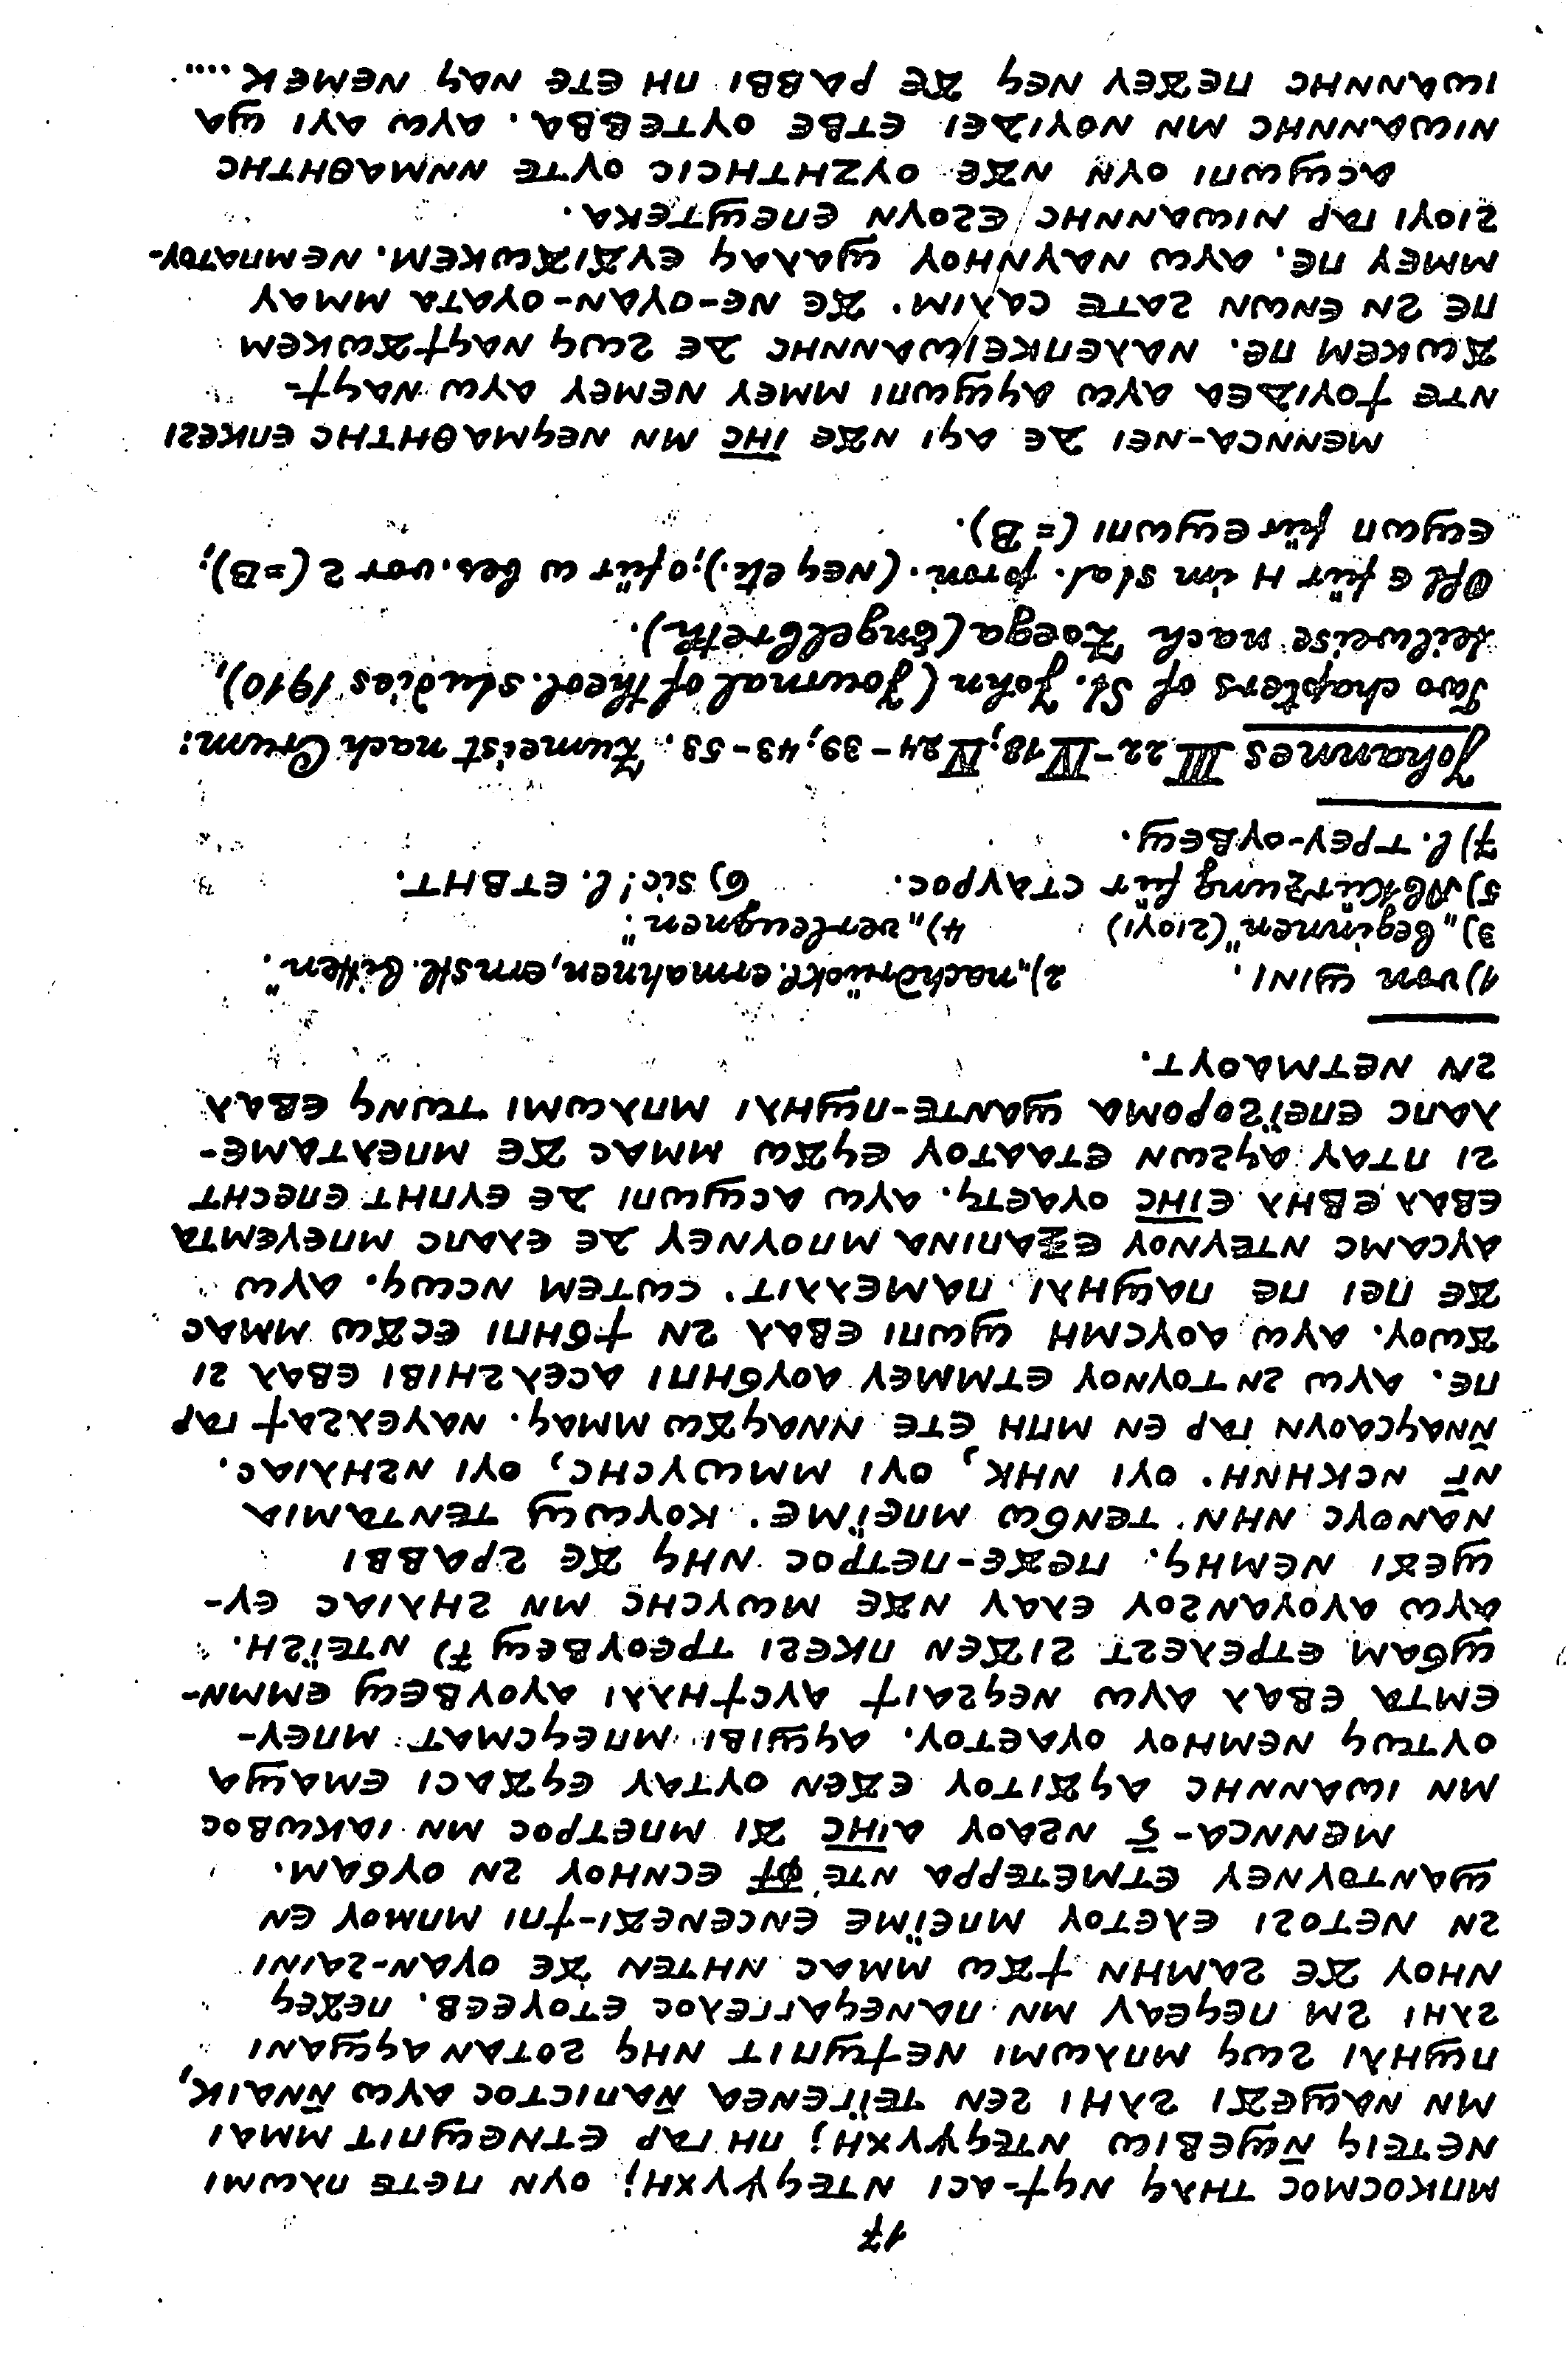 17
ⲙⲡⲕⲟⲥⲙⲟⲥ ⲧⲏⲗϥ ⲛϥϯ-ⲁⲥⲓ ⲛⲧⲉϥⲯⲩⲭⲏ; ⲟⲩⲛ ⲡⲉⲧⲉ ⲡⲗⲱⲙⲓ
ⲛⲉⲧⲉⲓϥ ⲛ̄ϣⲉⲃⲓⲱ ⲛⲧⲉϥⲯⲩⲭⲏ; ⲡⲏ ⲅⲁⲣ ⲉⲧⲛⲉϣⲡⲓⲧ ⲙⲙⲁⲓ
ⲙⲛ ⲛⲁϣⲉϫⲓ ϩⲗⲏⲓ ϩⲉⲛ ⲧⲉⲓ̈ⲅⲉⲛⲉⲁ ⲛ̄ⲁⲡⲓⲥⲧⲟⲥ ⲁⲩⲱ ⲛ̄ⲛⲁⲓⲕ,
ⲡϣⲏⲗⲓ ϩⲱϥ ⲙⲡⲗⲱⲙⲓ ⲛⲉϯϣⲡⲓⲧ ⲛⲏϥ ϩⲟⲧⲁⲛ ⲁϥϣⲁⲛⲓ
ϩⲗⲏⲓ ϩⲙ ⲡⲉϥⲉⲁⲩ ⲙⲛ ⲡⲁⲛⲉϥⲁⲅⲅⲉⲗⲟⲥ ⲉⲧⲟⲩⲉⲉⲃ. ⲡⲉϫⲉϥ
ⲛⲏⲟⲩ ϫⲉ ϩⲁⲙⲏⲛ ϯϫⲱ ⲙⲙⲁⲥ ⲛⲏⲧⲉⲛ ϫⲉ ⲟⲩⲁⲛ-ϩⲁⲓⲛⲓ
ϩⲛ ⲛⲉⲧⲟϩⲓ ⲉⲗⲉⲧⲟⲩ ⲙⲡⲉⲓ̈ⲙⲉ ⲉⲛⲥⲉⲛⲉϫⲓ-ϯⲡⲓ ⲙⲡⲙⲟⲩ ⲉⲛ
ϣⲁⲛⲧⲟⲩⲛⲉⲩ ⲉⲧⲙⲉⲧⲉⲣⲣⲁ ⲛⲧⲉ ⲫϯ ⲉⲥⲛⲏⲟⲩ ϩⲛ ⲟⲩϭⲁⲙ.
ⲙⲉⲛⲛⲥⲁ-ⲋ̄ ⲛϩⲁⲟⲩ ⲁⲓⲏⲥ ϫⲓ ⲙⲡⲉⲧⲣⲟⲥ ⲙⲛ ⲓⲁⲕⲱⲃⲟⲥ
ⲙⲛ ⲓⲱⲁⲛⲛⲏⲥ ⲁϥϫⲓⲧⲟⲩ ⲉϫⲉⲛ ⲟⲩⲧⲁⲩ ⲉϥϫⲁⲥⲓ ⲉⲙⲁϣⲁ
ⲟⲩⲧⲱϥ ⲛⲉⲙⲏⲟⲩ ⲟⲩⲁⲉⲧⲟⲩ. ⲁϥϣⲓⲃⲓ ⲙⲡⲉϥⲥⲙⲁⲧ ⲙⲡⲉⲩ-
ⲉⲙⲧⲁ ⲉⲃⲁⲗ ⲁⲩⲱ ⲛⲉϥϩⲁⲓϯ ⲁⲩⲥϯⲏⲗⲗⲓ ⲁⲩⲟⲩⲃⲉϣ ⲉⲙⲙⲛ-
ϣϭⲁⲙ ⲉⲧⲣⲉⲗⲉϩⲧ ϩⲓϫⲉⲛ ⲡⲕⲉϩⲓ ⲧⲣⲉⲟⲩⲃⲉϣ 7) ⲛⲧⲉⲓ̈ϩⲏ.
ⲁⲩⲱ ⲁⲩⲟⲩⲁⲛϩⲟⲩ ⲉⲗⲁⲩ ⲛϫⲉ ⲙⲱⲩⲥⲏⲥ ⲙⲛ ϩⲏⲗⲓⲁⲥ ⲉⲩ-
ϣⲉϫⲓ ⲛⲉⲙⲏϥ. ⲡⲉϫⲉ-ⲡⲉⲧⲣⲟⲥ ⲛⲏϥ ϫⲉ ϩⲣⲁⲃⲃⲓ
ⲛⲁⲛⲟⲩⲥ ⲛⲏⲛ ⲧⲉⲛϭⲱ ⲙⲡⲉⲓ̈ⲙⲉ. ⲕⲟⲩⲱϣ ⲧⲉⲛⲧⲁⲙⲓⲁ
ⲛⲅ̄ ⲛⲥⲕⲏⲛⲏ. ⲟⲩⲓ ⲛⲏⲕ, ⲟⲩⲓ ⲙⲙⲱⲩⲥⲏⲥ, ⲟⲩⲓ ⲛϩⲏⲗⲓⲁⲥ.
ⲛ̄ⲛⲁϥⲥⲁⲟⲩⲛ ⲅⲁⲣ ⲉⲛ ⲙⲡⲏ ⲉⲧⲉ ⲛⲛⲁϥϫⲱ ⲙⲙⲁϥ. ⲛⲁⲩⲉⲗϩⲁϯ ⲅⲁⲣ
ⲡⲉ. ⲁⲩⲱ ϩⲛ ⲧⲟⲩⲛⲟⲩ ⲉⲧⲙⲙⲉⲩ ⲁⲟⲩϭⲏⲡⲓ ⲁⲥⲉⲗϩⲏⲓⲃⲓ ⲉⲃⲁⲗ ϩⲓ
ϫⲱⲟⲩ. ⲁⲩⲱ ⲁⲟⲩⲥⲙⲏ ϣⲱⲡⲓ ⲉⲃⲁⲗ ϩⲛ ϯϭⲏⲡⲓ ⲉⲥϫⲱ ⲙⲙⲁⲥ
ϫⲉ ⲡⲉⲓ ⲡⲉ ⲡⲁϣⲏⲗⲓ ⲡⲁⲙⲉⲗⲗⲓⲧ. ⲥⲱⲧⲉⲙ ⲛⲥⲱϥ. ⲁⲩⲱ
ⲁⲩⲥⲁⲙⲥ ⲛⲧⲉⲩⲛⲟⲩ ⲉⲝⲁⲡⲓⲛⲁ ⲙⲡⲟⲩⲛⲉⲩ ⲇⲉ ⲉⲗⲁⲡⲥ ⲙⲡⲉⲩⲉⲙⲧⲁ
ⲉⲃⲁⲗ ⲉⲃⲏⲗ ⲉⲓⲏⲥ ⲟⲩⲁⲉⲧϥ. ⲁⲩⲱ ⲁⲥϣⲱⲡⲓ ⲇⲉ ⲉⲩⲡⲏⲧ ⲉⲡⲉⲥⲏⲧ
ϩⲓ ⲡⲧⲁⲩ ⲁϥϩⲱⲛ ⲉⲧⲁⲁⲧⲟⲩ ⲉϥϫⲱ ⲙⲙⲁⲥ ϫⲉ ⲙⲡⲉⲗⲧⲁⲙⲉ-
ⲗⲁⲡⲥ ⲉⲡⲉⲓ̈ϩⲟⲣⲟⲙⲁ ϣⲁⲛⲧⲉ-ⲡϣⲏⲗⲓ ⲙⲡⲗⲱⲙⲓ ⲧⲱⲛϥ ⲉⲃⲁⲗ
ϩⲛ ⲛⲉⲧⲙⲁⲟⲩⲧ.
1) von ϣⲓⲛⲓ. 2) „nachdrückl. ermahnen, ernstl. bitten".
3) „beginnen" (ϩⲓⲟⲩⲓ) 4) „verleugnen".
5) Abkürzung für ⲥⲧⲁⲩⲣⲟⲥ. 6) sic! l. ⲉⲧⲃⲏⲧ.
7) l. ⲧⲣⲉⲩ-ⲟⲩⲃⲉϣ.
Johannes III 22-IV 18; IV 24-39; 43-53. Zumeist nach Crum:
Two chapters of St. John (Journal of theol. studies 1910),
teilweise nach Zoega (Engelbreth).
Oft ⲉ für ⲏ im stat. pron. (ⲛⲉϥ etc.); ⲟ für ⲱ bes. vor ϩ (=B);
ⲉϣⲱⲡ für ⲉϣⲱⲡⲓ (=B).
ⲙⲉⲛⲛⲥⲁ-ⲛⲉⲓ ⲇⲉ ⲁϥⲓ ⲛϫⲉ ⲓⲏⲥ ⲙⲛ ⲛⲉϥⲙⲁⲑⲏⲧⲏⲥ ⲉⲡⲕⲉϩⲓ
ⲛⲧⲉ ϯⲟⲩⲓⲇⲉⲁ ⲁⲩⲱ ⲁϥϣⲱⲡⲓ ⲙⲙⲉⲩ ⲛⲉⲙⲉⲩ ⲁⲩⲱ ⲛⲁϥϯ-
ϫⲱⲕⲉⲙ ⲡⲉ. ⲛⲁⲗⲉⲡⲕⲉⲓⲱⲁⲛⲛⲏⲥ ⲇⲉ ϩⲱϥ ⲛⲁϥϯϫⲱⲕⲉⲙ
ⲡⲉ ϩⲛ ⲉⲛⲱⲛ ϩⲁⲧⲉ ⲥⲁⲗⲓⲙ. ϫⲉ ⲛⲉ-ⲟⲩⲁⲛ-ⲟⲩⲁⲧⲁ ⲙⲙⲁⲩ
ⲙⲙⲉⲩ ⲡⲉ. ⲁⲩⲱ ⲛⲁⲩⲛⲏⲟⲩ ϣⲁⲗⲁϥ ⲉⲩϫⲓϫⲱⲕⲉⲙ. ⲛⲉⲙⲡⲁⲧⲟⲩ-
ϩⲓⲟⲩⲓ ⲅⲁⲣ ⲛⲓⲱⲁⲛⲛⲏⲥ ⲉϩⲟⲩⲛ ⲉⲡⲉϣⲧⲉⲕⲁ.
ⲁⲥϣⲱⲡⲓ ⲟⲩⲛ ⲛϫⲉ ⲟⲩⲍⲏⲧⲏⲥⲓⲥ ⲟⲩⲧⲉ ⲛⲛⲙⲁⲑⲏⲧⲏⲥ
ⲛⲓⲱⲁⲛⲛⲏⲥ ⲙⲛ ⲛⲟⲩⲓⲇⲉⲓ ⲉⲧⲃⲉ ⲟⲩⲧⲉⲃⲃⲁ. ⲁⲩⲱ ⲁⲩⲓ ϣⲁ
ⲓⲱⲁⲛⲛⲏⲥ ⲡⲉϫⲉⲩ ⲛⲉϥ ϫⲉ ⲣⲁⲃⲃⲓ ⲡⲏ ⲉⲧⲉ ⲛⲁϥ ⲛⲉⲙⲉⲕ ....